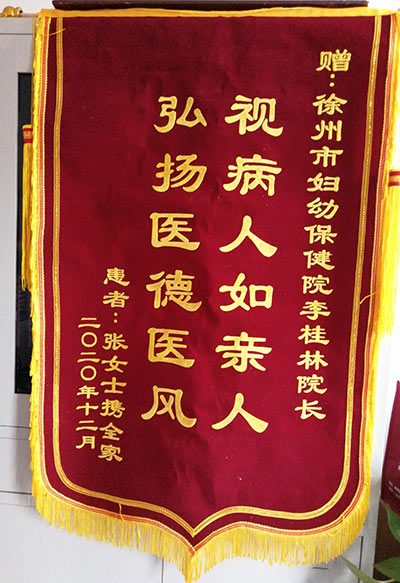 赠：徐州市妇幼保健院李桂林院长
视病人如亲人
弘扬医德医风
患者：张女士携全家
二〇二〇年十二月